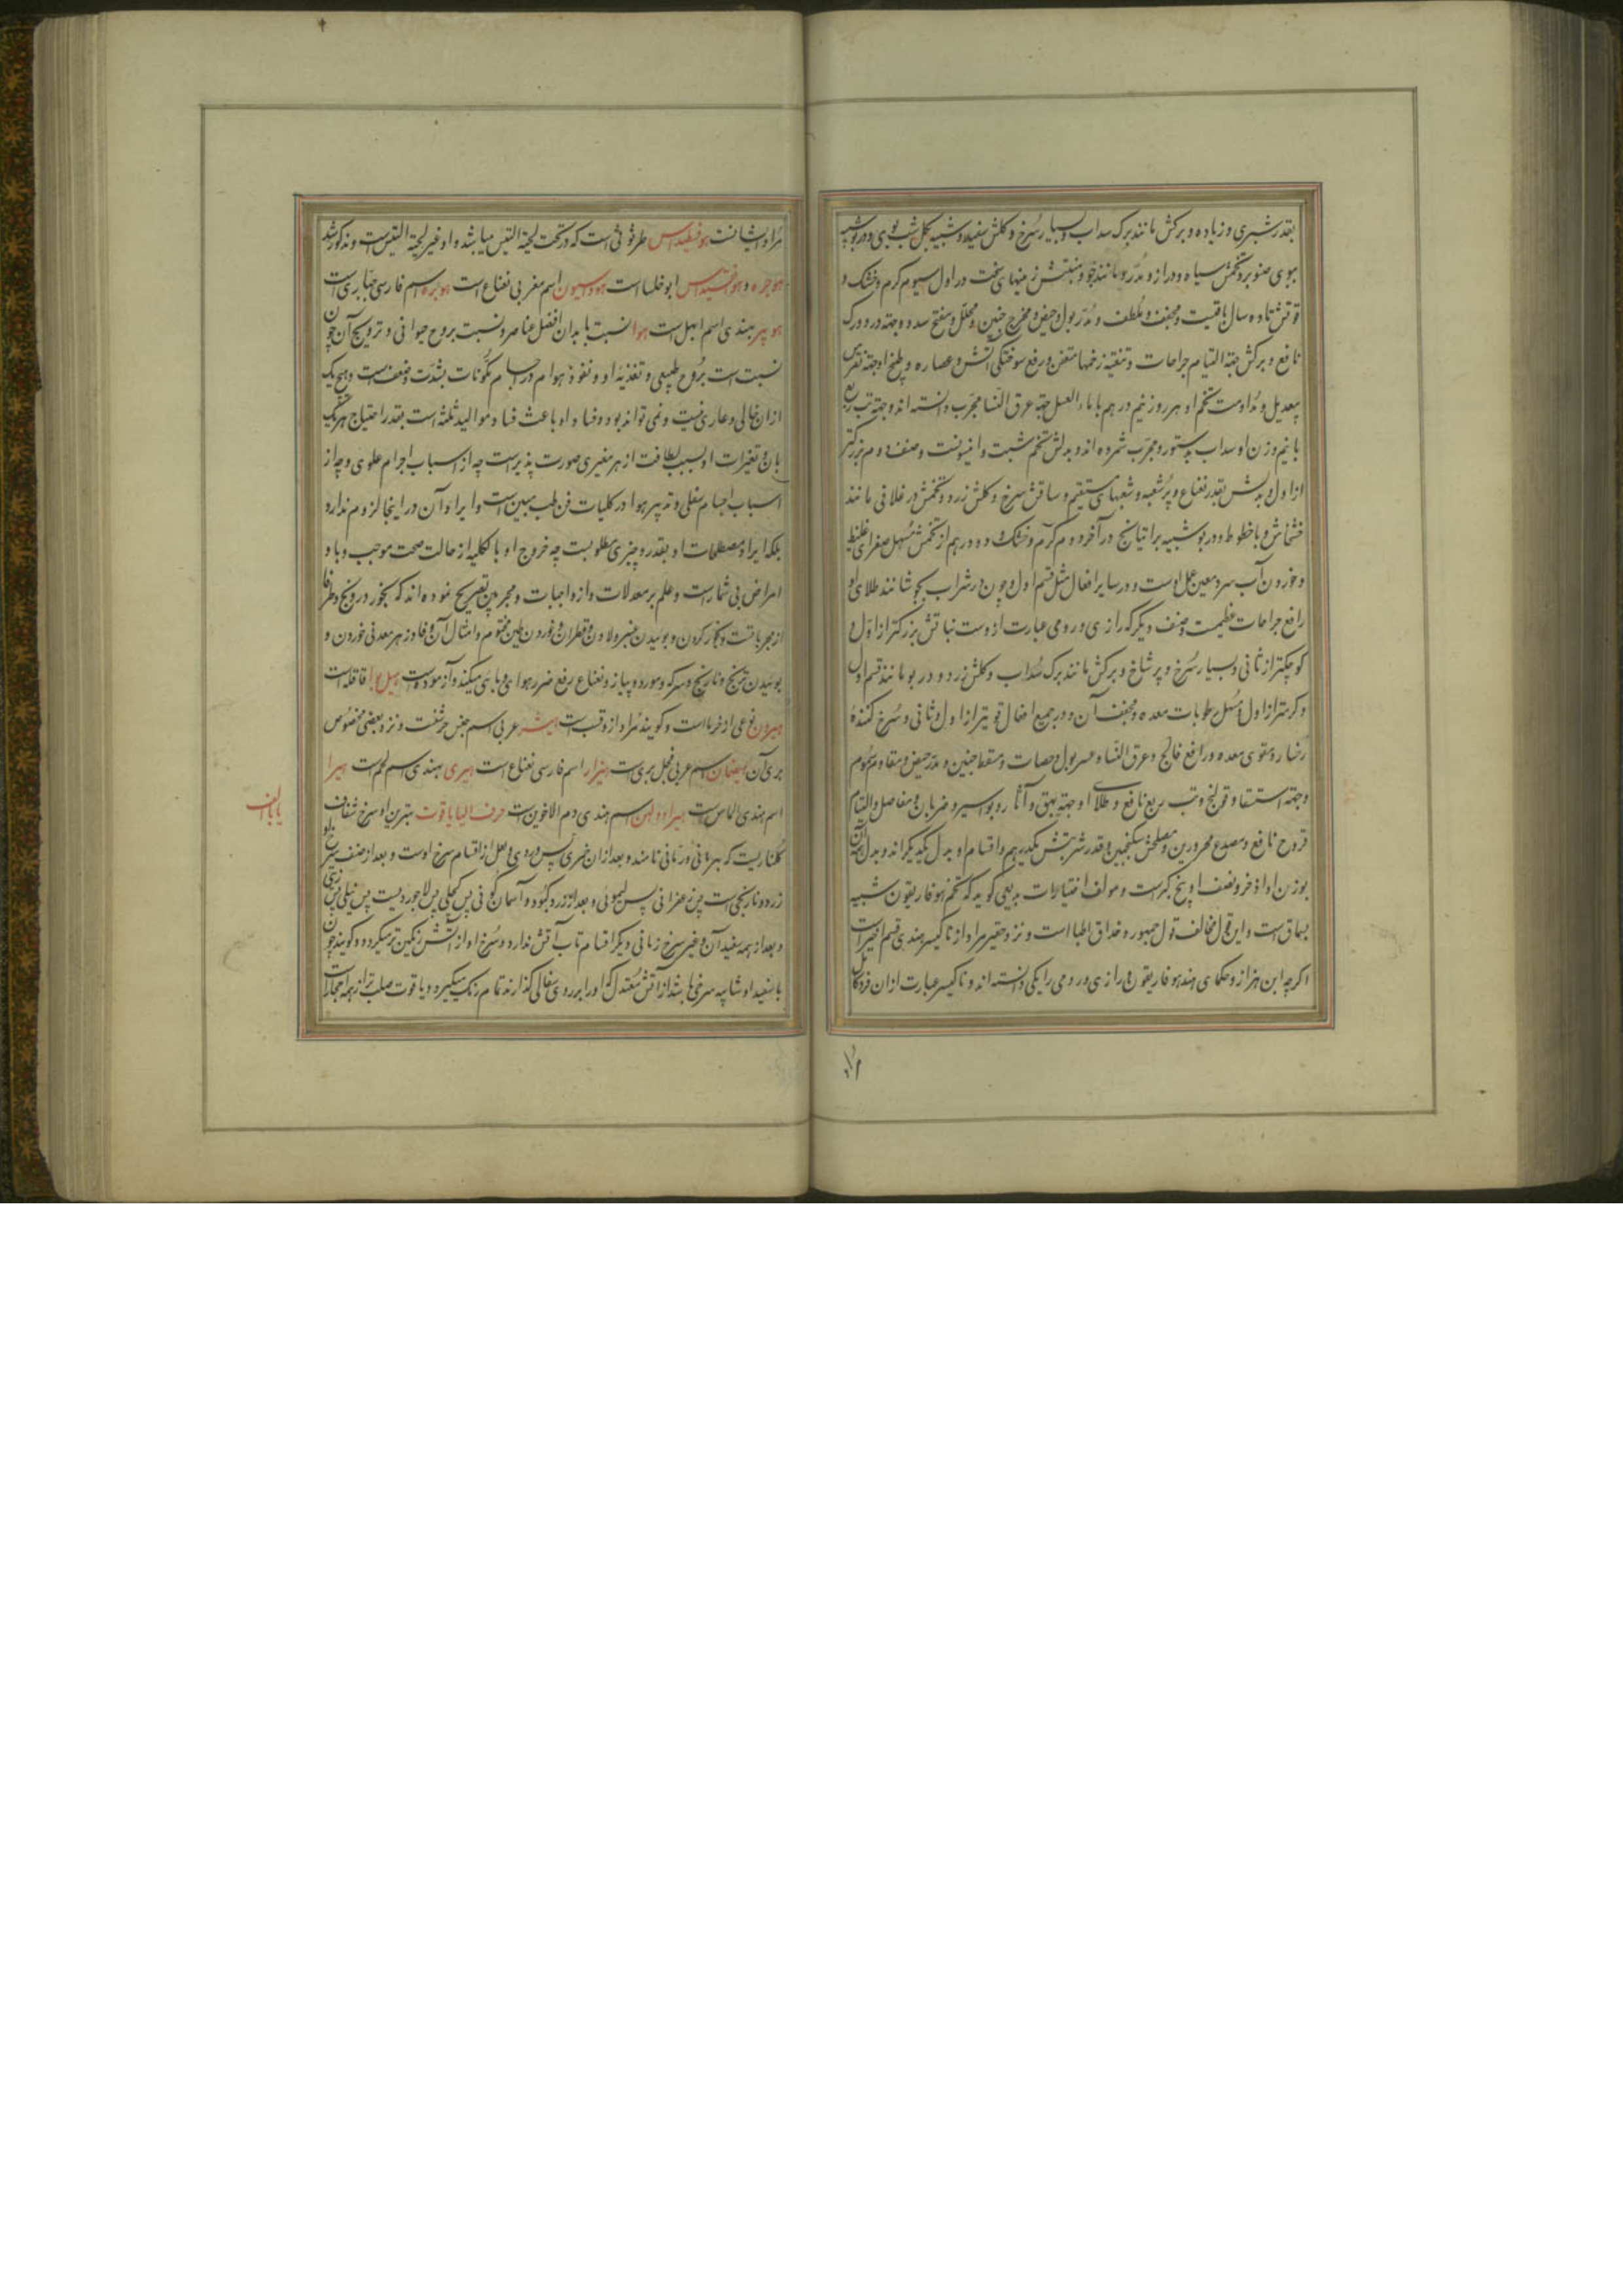 بقدر شبری و زیاده و برکش مانند برک سداب و بسیار سرخ و کلش سفید و شبیه بکل شب بوی و در بو شبیه
ببوی صنوبر و تخمش سیاه و دراز و مدور و مانند جو و منبتش زمینهای سخت در اول سیوم کرم و خشک و
قوتش تا ده سال باقیست و مجفف و ملطف و مدر بول و حیض و مخرج جنین و محلل و مفتح سدد و جهة درد ورک
نافع و برکش جهة التیام جراحات و تنقیه زخمها متعفن و رفع سوختکی آتش و عصاره و طبخ او جهة نقرس
بیعدیل و مداومت تخم او هر روز نیم درهم با ماء العسل جهة عرق النسا مجرب دانسته اند و جهة تب ربع
با نیم وزن او سداب بدستور و مجرب شمرده اند و بدلش تخم شبت و انیسونست و صنف دوم بزرکتر
از اول و بدلش بقدر نعناع و پرشعبه و شعبهای مستقیم و ساقش سرخ و کلش زرد و تخمش در غلافی مانند
خشخاش و با خطوط و در بو شبیه براتیانج در آخر دوم کرم و خشک و دو درهم از تخمش مسهل صفرای غلیظ
و خوردن آب سرد معین عمل اوست و در سایر افعال مثل قسم اول و چون در شراب بجوشانند طلای او
رافع جراحات عظیمست و صنف دیکر که رازی و رومی عبارت ازوست نباتش بزرکتر از اول و
کوچکتر از ثانی و بسیار سرخ و پر شاخ و برکش مانند برک سداب و کلش زرد و در بو مانند قسم اول
و کرمتر از اول و مسهل رطوبات معده و مجفف آن و در جمیع افعال قویتر از اول و ثانی و سرخ کنندهٔ
رخسار و مقوی معده و رافع فالج و عرق النسا و عسر بول و حصات و مسقط جنین و مدر حیض و مقاوم سموم
و جهة استسقا و قولنج و تب ربع نافع و طلای او جهة بهق و آثار و بواسیر و ضربان و مفاصل و التیام
قروح نافع و مصدع محرورین و مصلحش سکنجبین و قدر شربتش یکدرهم و اقسام او بدل یکدیکراند و بدل آن
بوزن او اذخر و نصف او بیخ کبرست و مولف اختیارات بدیعی کوید که تخم هوفاریقون شبیه
بسماق است و این قول مخالف قول جمهور و حذاق اطبا است و نزد حقیر مراد از ناکیسر هندی قسم اخیرست
اکرچه ابن هزار و حکمای هند هوفاریقون و رازی و رومی را یکی دانسته اند و ناکیسر عبارت ازان
مراد ایشانست هوفسطیداس طرثوثی است که در تحت لحیة التیس میباشد و او غیر لحیة التیس است و مذکور شد
هوجره و ابو خلسا است اسم مغربی نعناع است هوبره اسم فارسی حباری است
هوبیر بهندی اسم ابهل است هوا نسبت بابدان افضل عناصر و نسبت بروح حیوانی و ترویج آن چون
نسبت است بروح طبیعی و تغذیه او و نفوذ هوا در اجسام مکونات بشدت و ضعف است و هیچ یک
ازان خالی و عاری نیست و نمی تواند بود و فساد او باعث فساد موالید ثلثه است بقدر احتیاج هر یک
بان و تغیرات او بسبب لطافت از هر مغیری صورت پذیرست چه از اسباب اجرام علوی و چه از
اسباب اجسام سفلی و تدبیر هوا در کلیات فن طب مبین است و ایراد آن در اینجا لزوم ندارد
بلکه ایراد مصطلحات او بقدر و چیزی مطلوبست چه خروج او بالکلیه از حالت صحت موجب وبا و
امراض بی شمارست و علم بر معدلات واز واجبات و مجربین تصریح نموده اند که بخور درونج و ظفار
از مجرباتست و بخور کردن و بوئیدن عنبر و لادن و قطران و خوردن طین مختوم و امثال آن و فادزهر معدنی خوردن و
بوئیدن ترنج و نارنج و سرکه و مورد و پیاز و نعناع رفع ضرر هوای وبایی میکند و آزموده است هیل بوا قاقله است
هیرون نوعی از خرما است و کویند مراد ازو قسب است هیشر عربی اسم جنس حرشفست و نزد بعضی مخصوص
بری آن هیضمان اسم عربی فجل بری است هیزار اسم فارسی نعناع است هیری بهندی اسم لحم است هیرا
اسم هندی الماس است هیرادولهن اسم هندی دم الاخوین است حرف الیا یاقوت بهترین او سرخ شفاف
کلناریست که بهرمانی و رمانی نامند و بعد ازان خمری پس وردی و لعل از اقسام سرخ اوست و بعد از صنف سرخ او
زرد و نارنجی است پس زعفرانی پس لیموئی و بعد از زرد کبود و آسمان کونی پس کحلی پس لاجوردیست پس نیلی پس زیتی
و بعد از همه سفید آن و غیر سرخ رمانی دیکر اقسام تاب آتش ندارد و سرخ او از آتش رنکین تر میکردد و کویند چون
با سفید او شایبه سرخی باشد از آتش معتدل که او را بر روی سفالی کذارند تمام رنک میکیرد و یاقوت صلب تر از همه احجارست
یا بالف